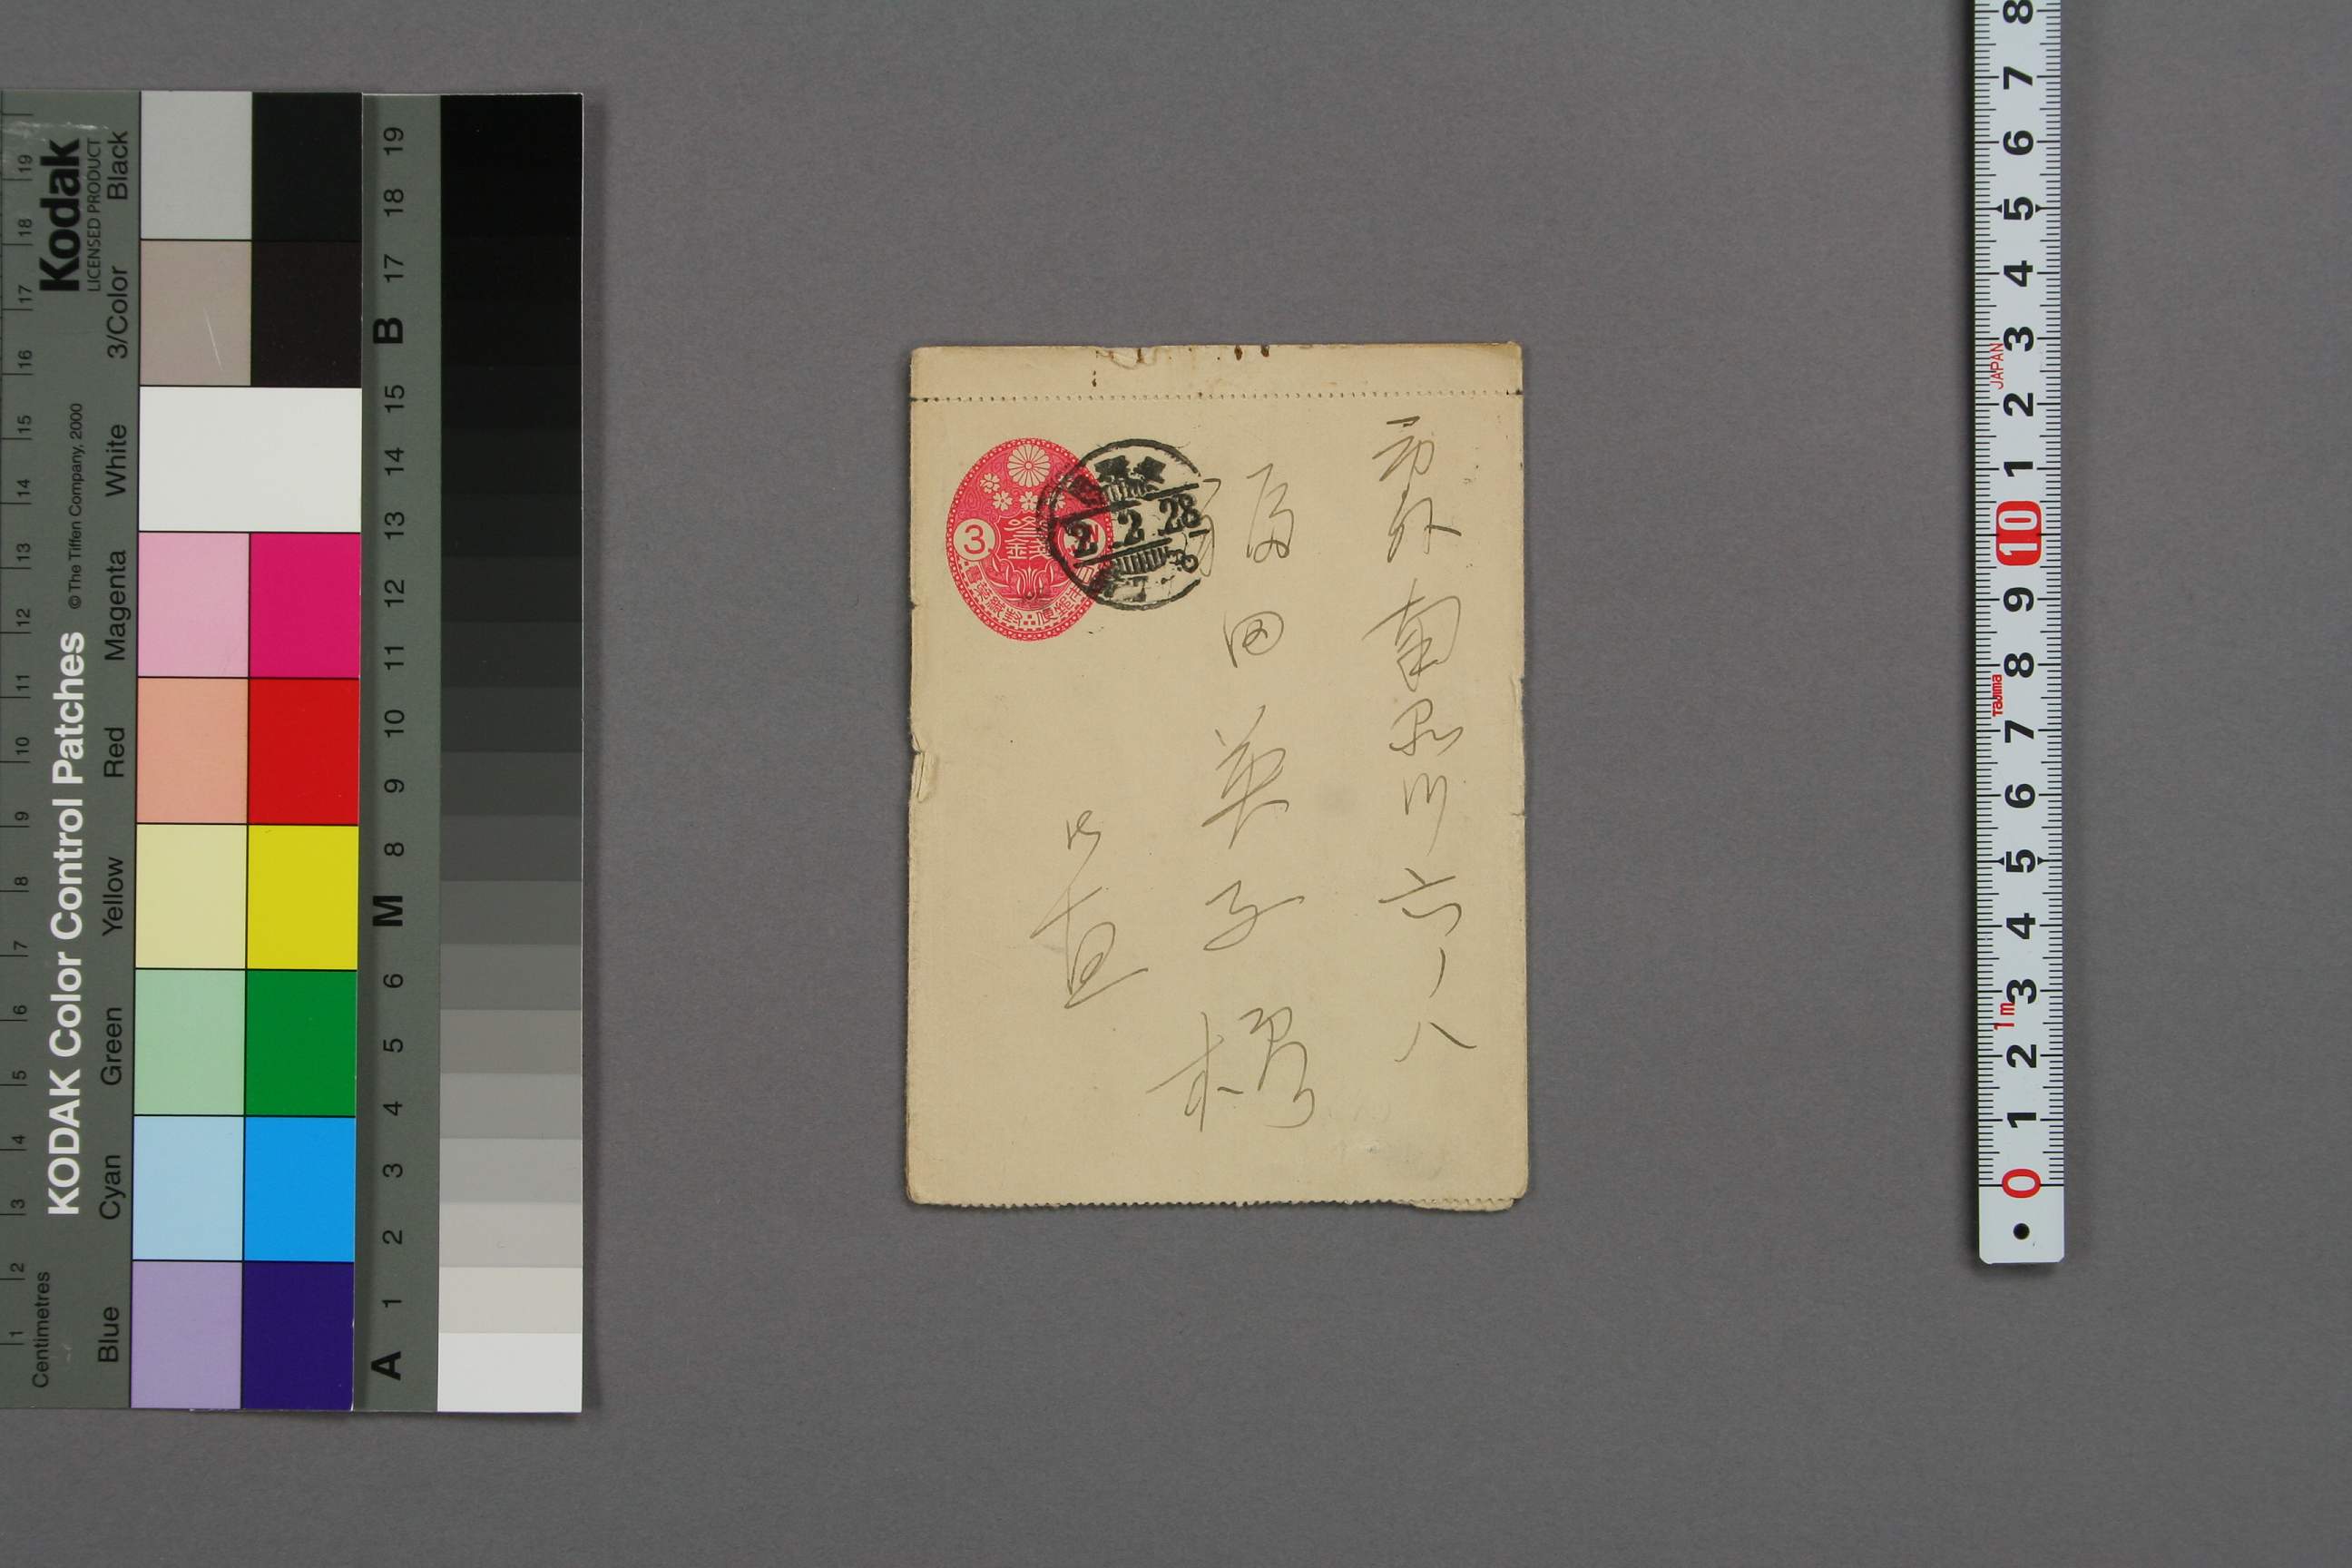 市外南品川六ノ八
福田英子様
御直
3
參錢
2 2 28
Kodak
LICENSED PRODUCT
KODAK Color Control Patches
© The Tiffen Company, 2000
Centimetres
1 2 3 4 5 6 7 8 9 10 11 12 13 14 15 16 17 18 19
Blue
Cyan
Green
Yellow
Red
Magenta
White
3/Color
Black
A 1 2 3 4 5 6 M 8 9 10 11 12 13 14 15 B 17 18 19
8
7
6
5
4
3
JAPAN
2
1
10
9
8
Tajima
7
6
5
4
3
1m
2
1
0